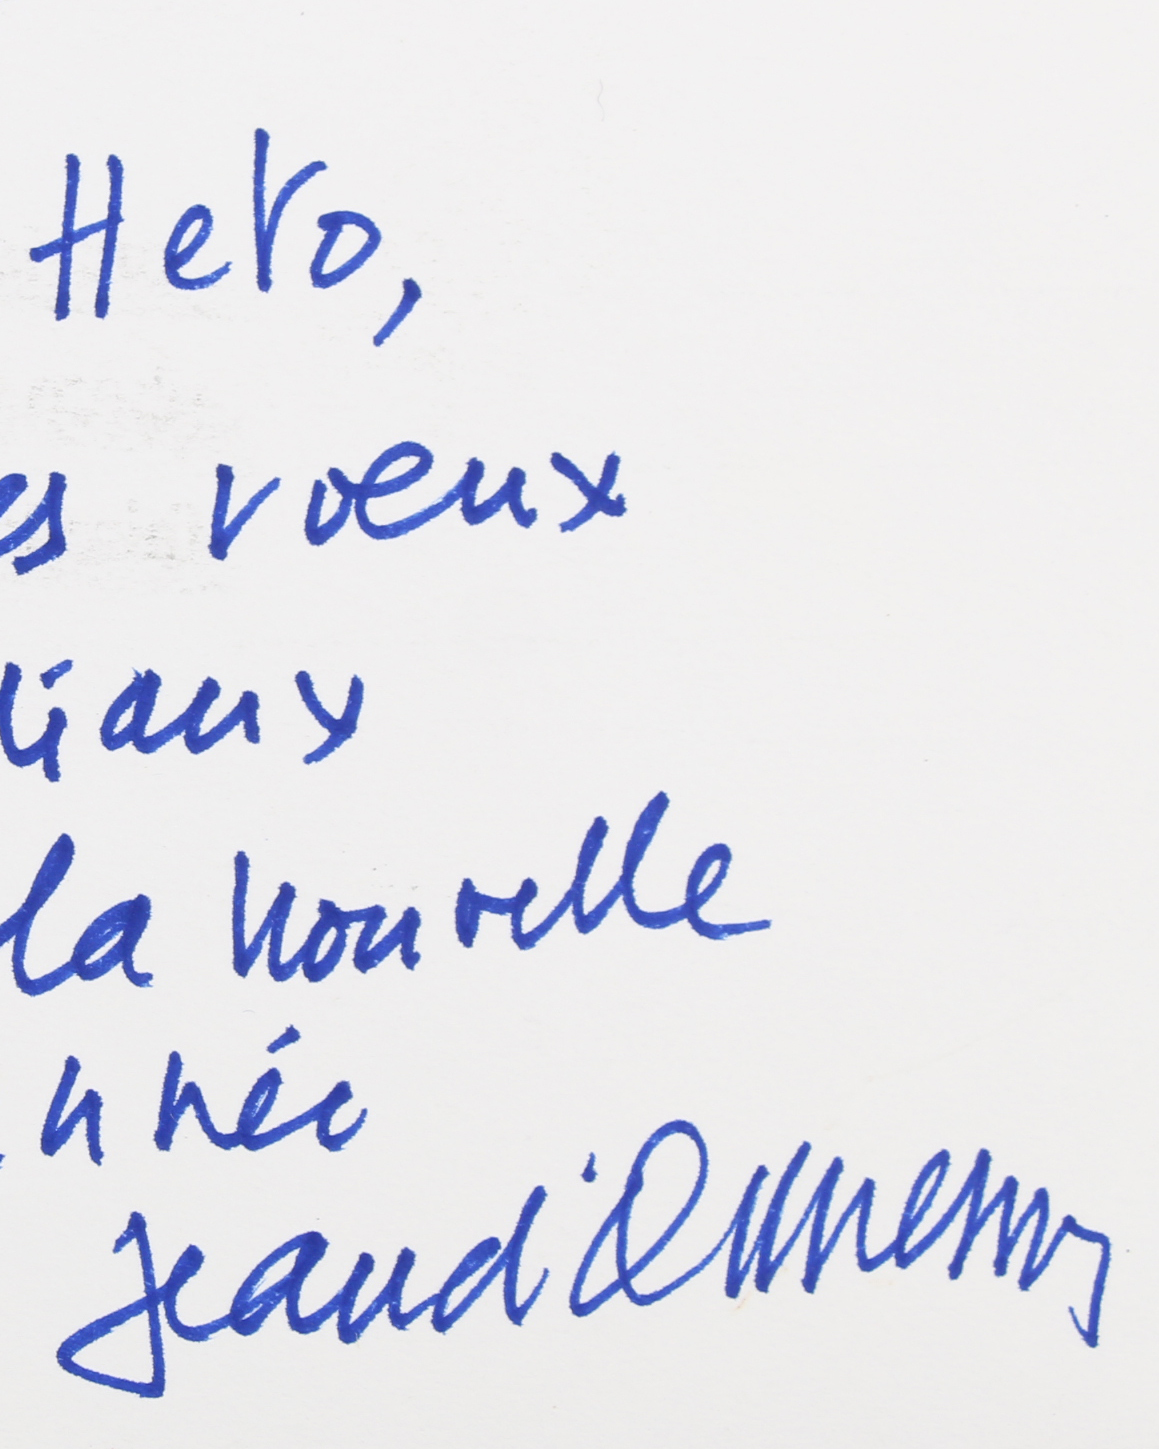 Hero,
es vœux
diaux
la nouvelle
nnée
Jean d'Ormesson